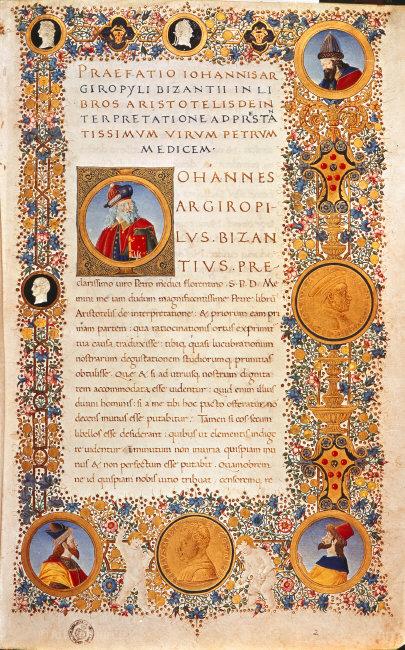 PRAEFATIO IOHANNIS AR
GIROPYLI BIZANTII IN LI
BROS ARISTOTELIS DE IN
TERPRETATIONE AD PRESTA
TISSIMUM VIRUM PETRUM
MEDICEM.
IOHANNES
ARGIROPI
LVS. BIZAN
TIVS. PRE
clarissimo uiro Petro medici florentino. S. P. D. Me
mini me iam dudum magnificentissime Petre. librū
Aristotelis de interpretatione: & priorum eam pri
mam partem: qua ratiocinationis ortus exprimi
tur tua causa traduxisse: tibiq. quasi lucubrationum
nostrarum degustationem studiorumq. primitias
obtulisse. Que & si ad utriusq. nostrum dignita
tem accommodata esse uidentur: quid enim illius
diuini hominis: si a me tibi hoc pacto offeratur no
decens munus esse putabitur. Tamen si cos secum
libellos esse desiderant: quibus ut elementis indige
re uidentur. Eminutum non iniuria quispiam mu
nus & non perfectum esse putabit. Quamobrem
ne id quispiam nobis uitio tribuat. censeremq. re
2